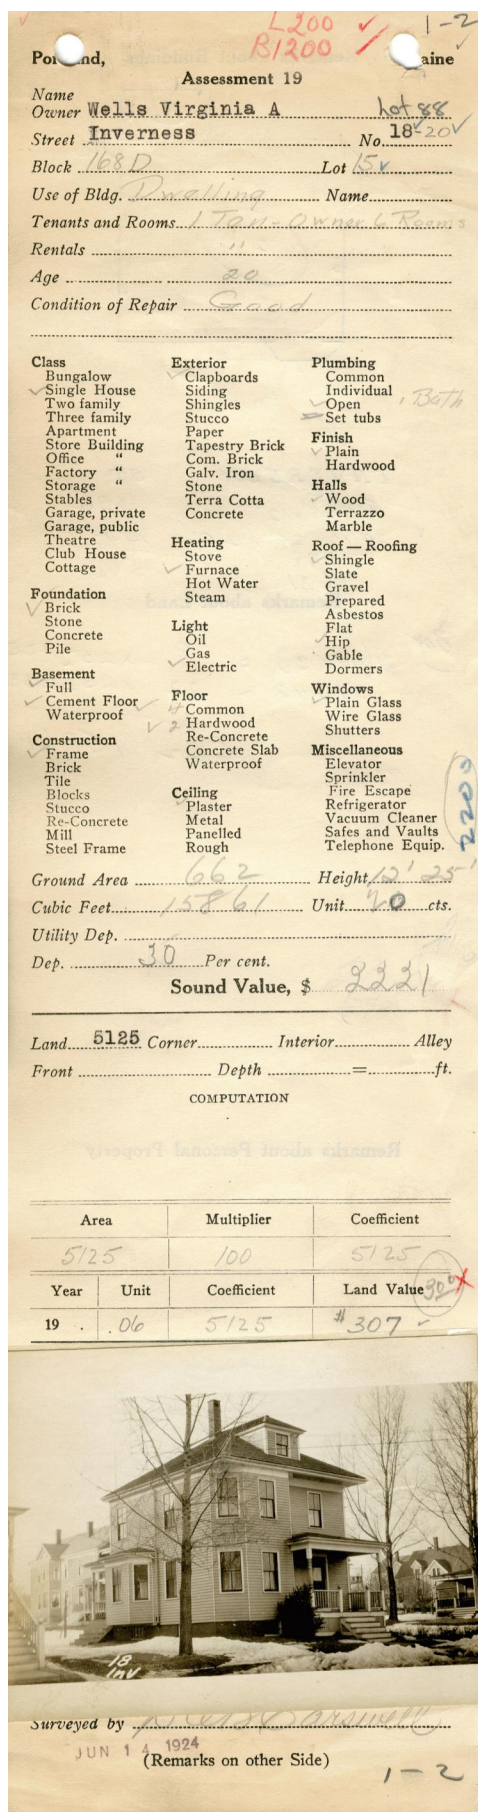 L200 ✓ 1-2
B1200 ✓
Portland, Maine
Assessment 19
Name
Owner Wells Virginia A Lot 88
Street Inverness No. 18-20 ✓
Block 168D Lot 15 ✓
Use of Bldg. Dwelling Name
Tenants and Rooms 1 Ten - Owner 6 Rooms
Rentals "
Age 20
Condition of Repair Good
Class
Bungalow
✓ Single House
Two family
Three family
Apartment
Store Building
Office "
Factory "
Storage "
Stables
Garage, private
Garage, public
Theatre
Club House
Cottage
Foundation
✓ Brick
Stone
Concrete
Pile
Basement
✓ Full
✓ Cement Floor ✓
Waterproof
Construction
✓ Frame
Brick
Tile
Blocks
Stucco
Re-Concrete
Mill
Steel Frame
Exterior
✓ Clapboards
Siding
Shingles
Stucco
Paper
Tapestry Brick
Com. Brick
Galv. Iron
Stone
Terra Cotta
Concrete
Heating
Stove
✓ Furnace
Hot Water
Steam
Light
Oil
Gas
✓ Electric
Floor
4 Common
✓ 2 Hardwood
Re-Concrete
Concrete Slab
Waterproof
Ceiling
✓ Plaster
Metal
Panelled
Rough
Plumbing
Common
Individual
✓ Open 1 Bath
Set tubs
Finish
✓ Plain
Hardwood
Halls
✓ Wood
Terrazzo
Marble
Roof — Roofing
✓ Shingle
Slate
Gravel
Prepared
Asbestos
Flat
✓ Hip
Gable
Dormers
Windows
✓ Plain Glass
Wire Glass
Shutters
Miscellaneous
Elevator
Sprinkler
Fire Escape
Refrigerator
Vacuum Cleaner
Safes and Vaults
Telephone Equip.
2200
Ground Area 662 Height 12' 25'
Cubic Feet 15861 Unit 20 cts.
Utility Dep.
Dep. 30 Per cent.
Sound Value, $ 2221
Land 5125 Corner Interior Alley
Front Depth = ft.
COMPUTATION
Remarks about Personal Property
Area Multiplier Coefficient
5125 100 5125
Year Unit Coefficient Land Value 300 X
19 . .06 5125 $307 ✓
18
Inv
Surveyed by
JUN 14 1924
(Remarks on other Side)
1-2